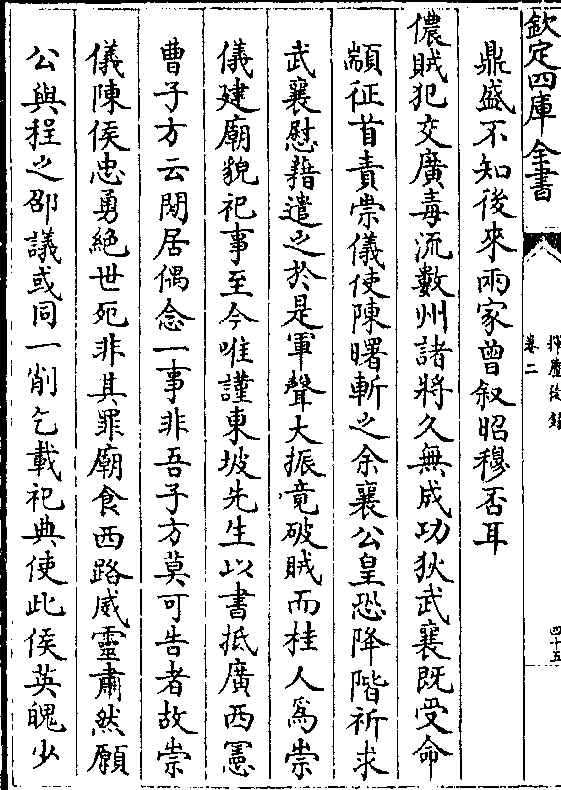 欽定四庫全書
揮麈後錄
卷二
四十五
鼎盛不知後來兩家曾叙昭穆否耳
儂賊犯交廣毒流數州諸將久無成功狄武襄既受命
顓征首責崇儀使陳曙斬之余襄公皇恐降階祈求
武襄慰藉遣之於是軍聲大振竟破賊而桂人為崇
儀建廟貌祀事至今唯謹東坡先生以書抵廣西憲
曹子方云閒居偶念一事非吾子方莫可告者故崇
儀陳侯忠勇絶世死非其罪廟食西路威靈肅然願
公與程之邵議或同一削乞載祀典使此侯英魄少